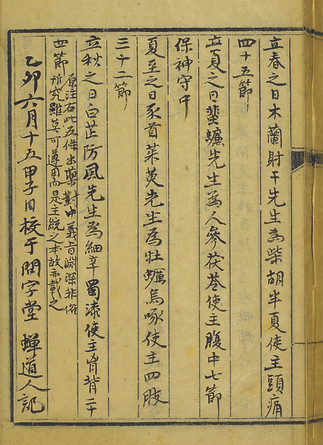 立春之日木蘭射干先生為柴胡半夏使主頭痛
四十五節
立夏之日蜚蠊先生為人參茯苓使主腹中七節
保神守中
夏至之日豕首茱萸先生為牡蠣烏喙使主四肢
三十二節
立秋之日白芷防風先生為細辛蜀漆使主胷背二十
四節
原注右此五件出藥對中義旨淵深非俗
所究雖莫可遵用而是主統之本故亦載之
乙卯六月十五甲子日校于問字堂 蟬道人記